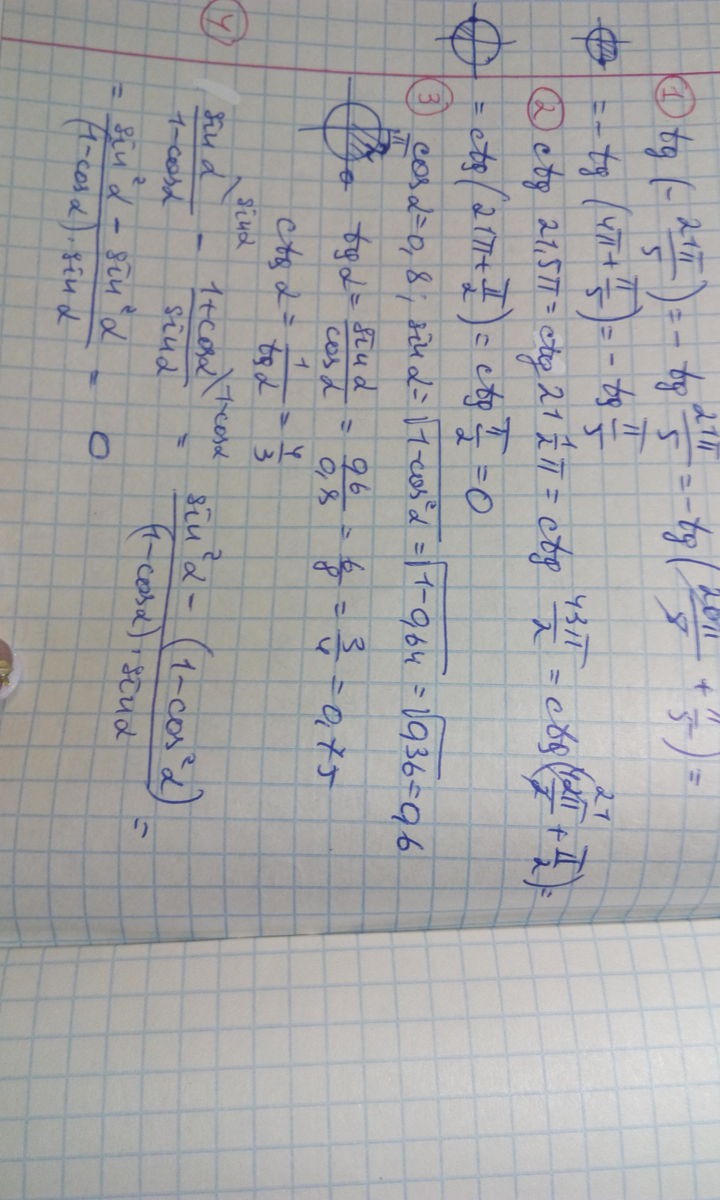 ① tg(-21π/5) = -tg 21π/5 = -tg(20π/5 + π/5) =
= -tg(4π + π/5) = -tg π/5
② ctg 21,5π = ctg 21 1/2 π = ctg 43π/2 = ctg(42π/2 + π/2) =
= ctg(21π + π/2) = ctg π/2 = 0
③ cos α = 0,8; sin α = √(1-cos²α) = √(1-0,64) = √0,36 = 0,6
tg α = sin α/cos α = 0,6/0,8 = 6/8 = 3/4 = 0,75
ctg α = 1/tg α = 4/3
④ sin α/(1-cos α) \sin α - (1+cos α)/sin α \1-cos α = (sin²α - (1-cos²α))/((1-cos α)·sin α) =
= (sin²α - sin²α)/((1-cos α)·sin α) = 0